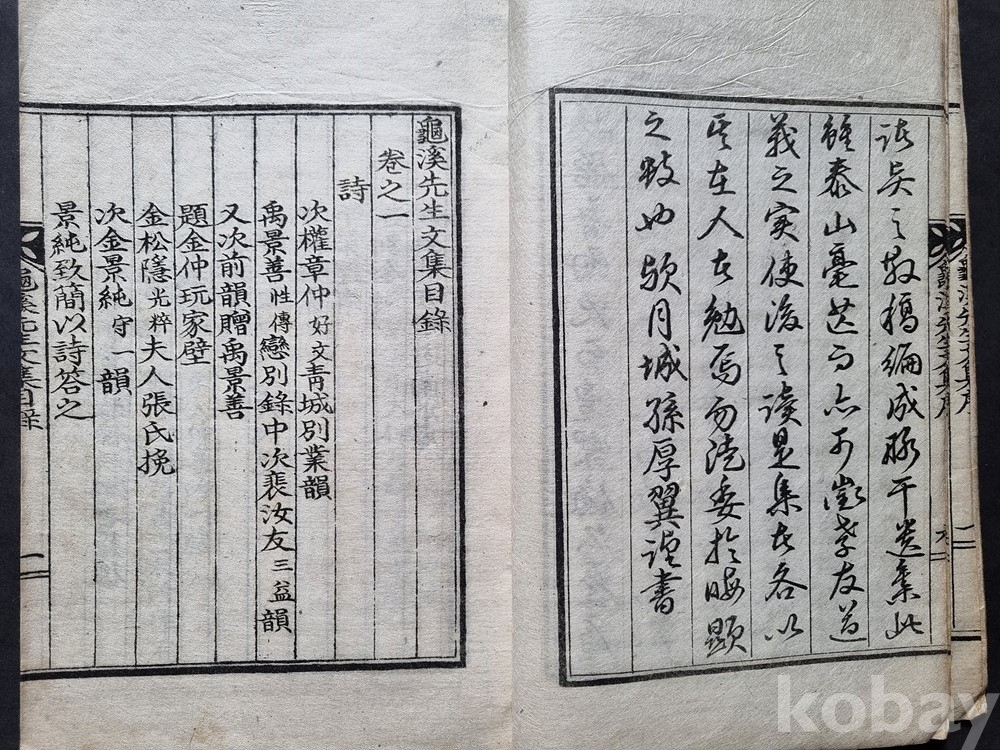 之散稿編成若干遺集此
雖泰山毫芒而亦可徵孝友道
義之実使後之讀是集者各以
其在人者勉焉勿諉委於晦顯
之也歟月城孫厚翼謹書
龜溪先生文集目錄
卷之一
詩
次權章仲好文青城別業韻
禹景善性傳戀別錄中次裵汝友三益韻
又次前韻贈禹景善
題金仲玩家壁
金松隱光粹夫人張氏挽
次金景純守一韻
景純致簡以詩答之
龜溪先生文集目錄
一
龜溪先生文集序
kobay